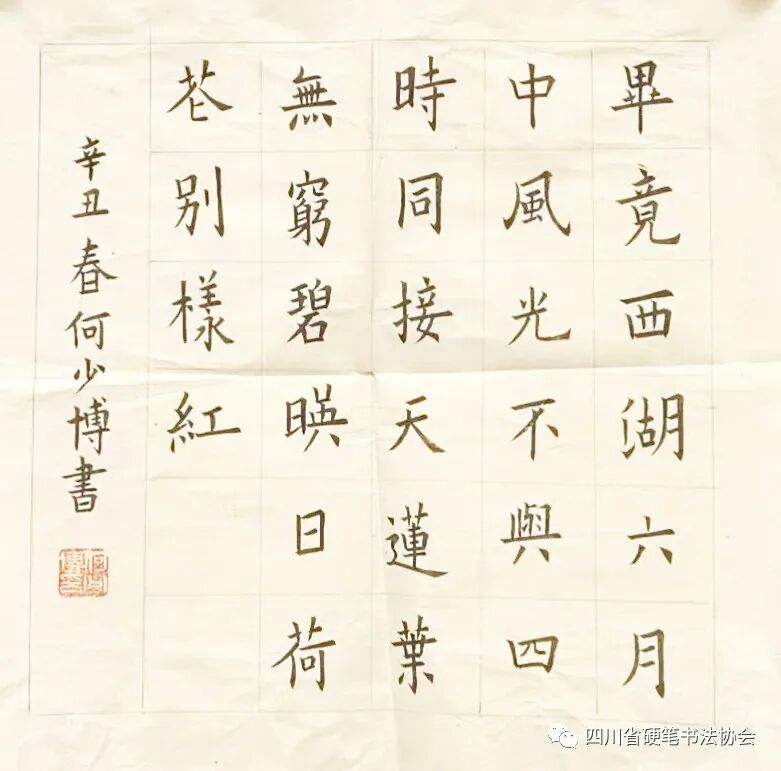 畢竟西湖六月
中風光不與四
時同接天蓮葉
無窮碧暎日荷
花别樣紅
辛丑春何少博書
四川省硬笔书法协会